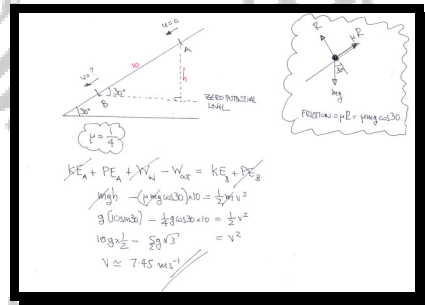 u=0
A
10
h
v=?
30°
B
30°
ZERO POTENTIAL
LEVEL
μ = 1/4
R
μR
30
mg
FRICTION = μR = μmg cos30
KE_A + PE_A + W_IN - W_OUT = KE_B + PE_B
mgh - (μmg cos30)×10 = 1/2 mv²
g(10sin30) - 1/4 g cos30 × 10 = 1/2 v²
10g×1/2 - 5/2 g√3 = v²
V ≃ 7.45 ms⁻¹